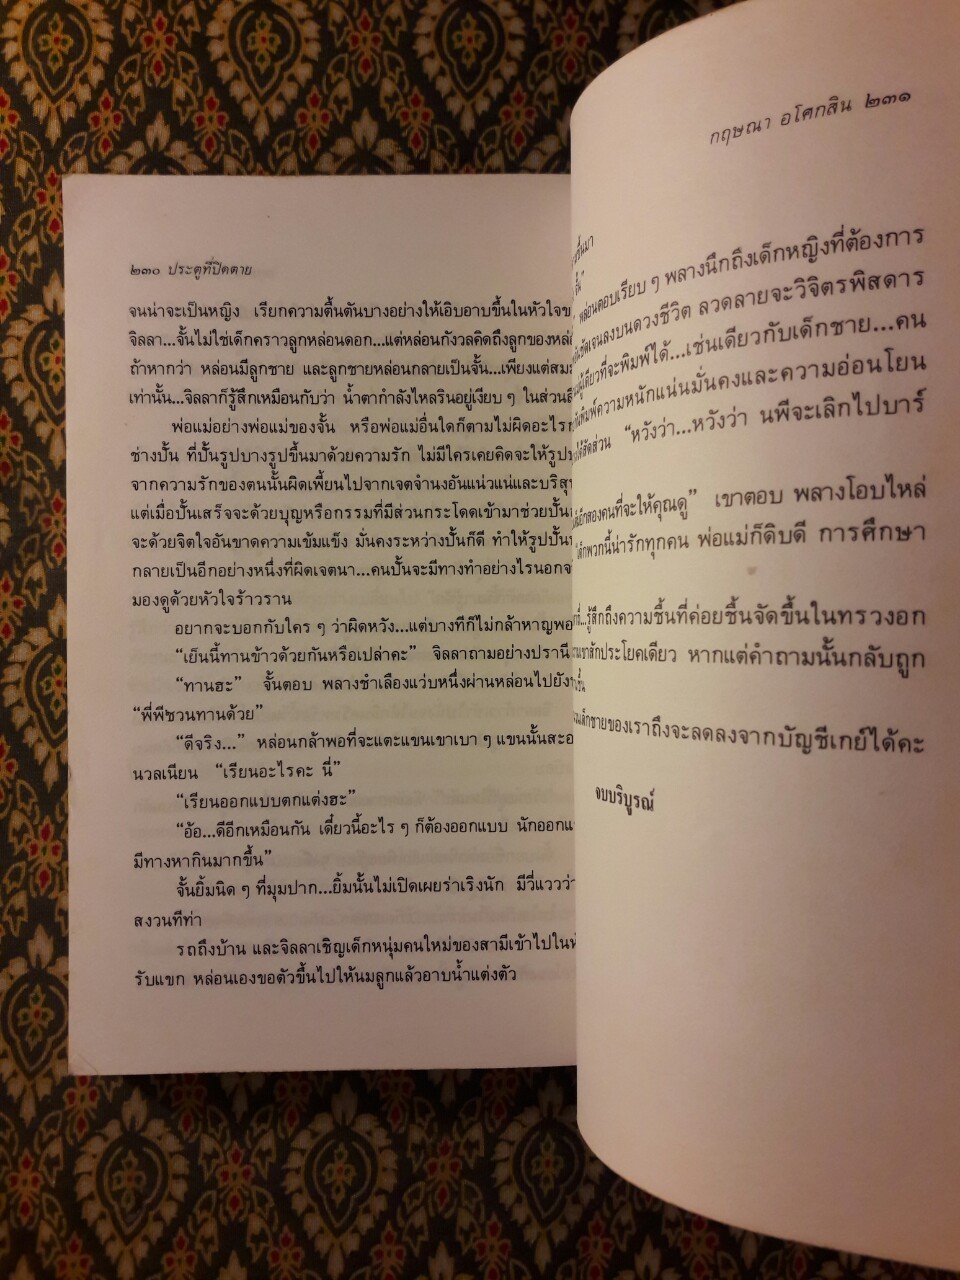 ๒๓๐ ประตูที่ปิดตาย
จนน่าจะเป็นหญิง เรียกความตื้นตันบางอย่างให้เอิบอาบขึ้นในหัวใจข
จิลลา...จั้นไม่ใช่เด็กคราวลูกหล่อนดอก...แต่หล่อนกังวลคิดถึงลูกของหล่
ถ้าหากว่า หล่อนมีลูกชาย และลูกชายหล่อนกลายเป็นจั้น...เพียงแต่สม
เท่านั้น...จิลลาก็รู้สึกเหมือนกับว่า น้ำตากำลังไหลรินอยู่เงียบ ๆ ในส่วนลึ
พ่อแม่อย่างพ่อแม่ของจั้น หรือพ่อแม่อื่นใดก็ตามไม่ผิดอะไรก
ช่างปั้น ที่ปั้นรูปบางรูปขึ้นมาด้วยความรัก ไม่มีใครเคยคิดจะให้รูป
จากความรักของตนนั้นผิดเพี้ยนไปจากเจตจำนงอันแน่วแน่และบริสุ
แต่เมื่อปั้นเสร็จจะด้วยบุญหรือกรรมที่มีส่วนกระโดดเข้ามาช่วยปั้น
จะด้วยจิตใจอันขาดความเข้มแข็ง มั่นคงระหว่างปั้นก็ดี ทำให้รูปปั้น
กลายเป็นอีกอย่างหนึ่งที่ผิดเจตนา...คนปั้นจะมีทางทำอย่างไรนอกจ
มองดูด้วยหัวใจร้าวราน
อยากจะบอกกับใคร ๆ ว่าผิดหวัง...แต่บางทีก็ไม่กล้าหาญพอ
“เย็นนี้ทานข้าวด้วยกันหรือเปล่าคะ” จิลลาถามอย่างปรานี
“ทานฮะ” จั้นตอบ พลางชำเลืองแว่บหนึ่งผ่านหล่อนไปยัง
“พี่พีชวนทานด้วย”
“ดีจริง...” หล่อนกล้าพอที่จะแตะแขนเขาเบา ๆ แขนนั้นสะอ
นวลเนียน “เรียนอะไรคะ นี่”
“เรียนออกแบบตกแต่งฮะ”
“อ้อ...ดีอีกเหมือนกัน เดี๋ยวนี้อะไร ๆ ก็ต้องออกแบบ นักออกแ
มีทางหากินมากขึ้น”
จั้นยิ้มนิด ๆ ที่มุมปาก...ยิ้มนั้นไม่เปิดเผยร่าเริงนัก มีวี่แววว่า
สงวนทีท่า
รถถึงบ้าน และจิลลาเชิญเด็กหนุ่มคนใหม่ของสามีเข้าไปในห้
รับแขก หล่อนเองขอตัวขึ้นไปให้นมลูกแล้วอาบน้ำแต่งตัว
กฤษณา อโศกสิน ๒๓๑
หล่อนตอบเรียบ ๆ พลางนึกถึงเด็กหญิงที่ต้องการ
ชัดเจนลงบนดวงชีวิต ลวดลายจะวิจิตรพิสดาร
ผู้เดียวที่จะพิมพ์ได้...เช่นเดียวกับเด็กชาย...คน
พิมพ์ความหนักแน่นมั่นคงและความอ่อนโยน
ได้สัดส่วน “หวังว่า...หวังว่า นพีจะเลิกไปบาร์
อีกสองคนที่จะให้คุณดู” เขาตอบ พลางโอบไหล่
เด็กพวกนี้น่ารักทุกคน พ่อแม่ก็ดิบดี การศึกษา
รู้สึกถึงความชื้นที่ค่อยชื้นจัดขึ้นในทรวงอก
สักประโยคเดียว หากแต่คำถามนั้นกลับถูก
เด็กชายของเราถึงจะลดลงจากบัญชีเกย์ได้คะ
จบบริบูรณ์